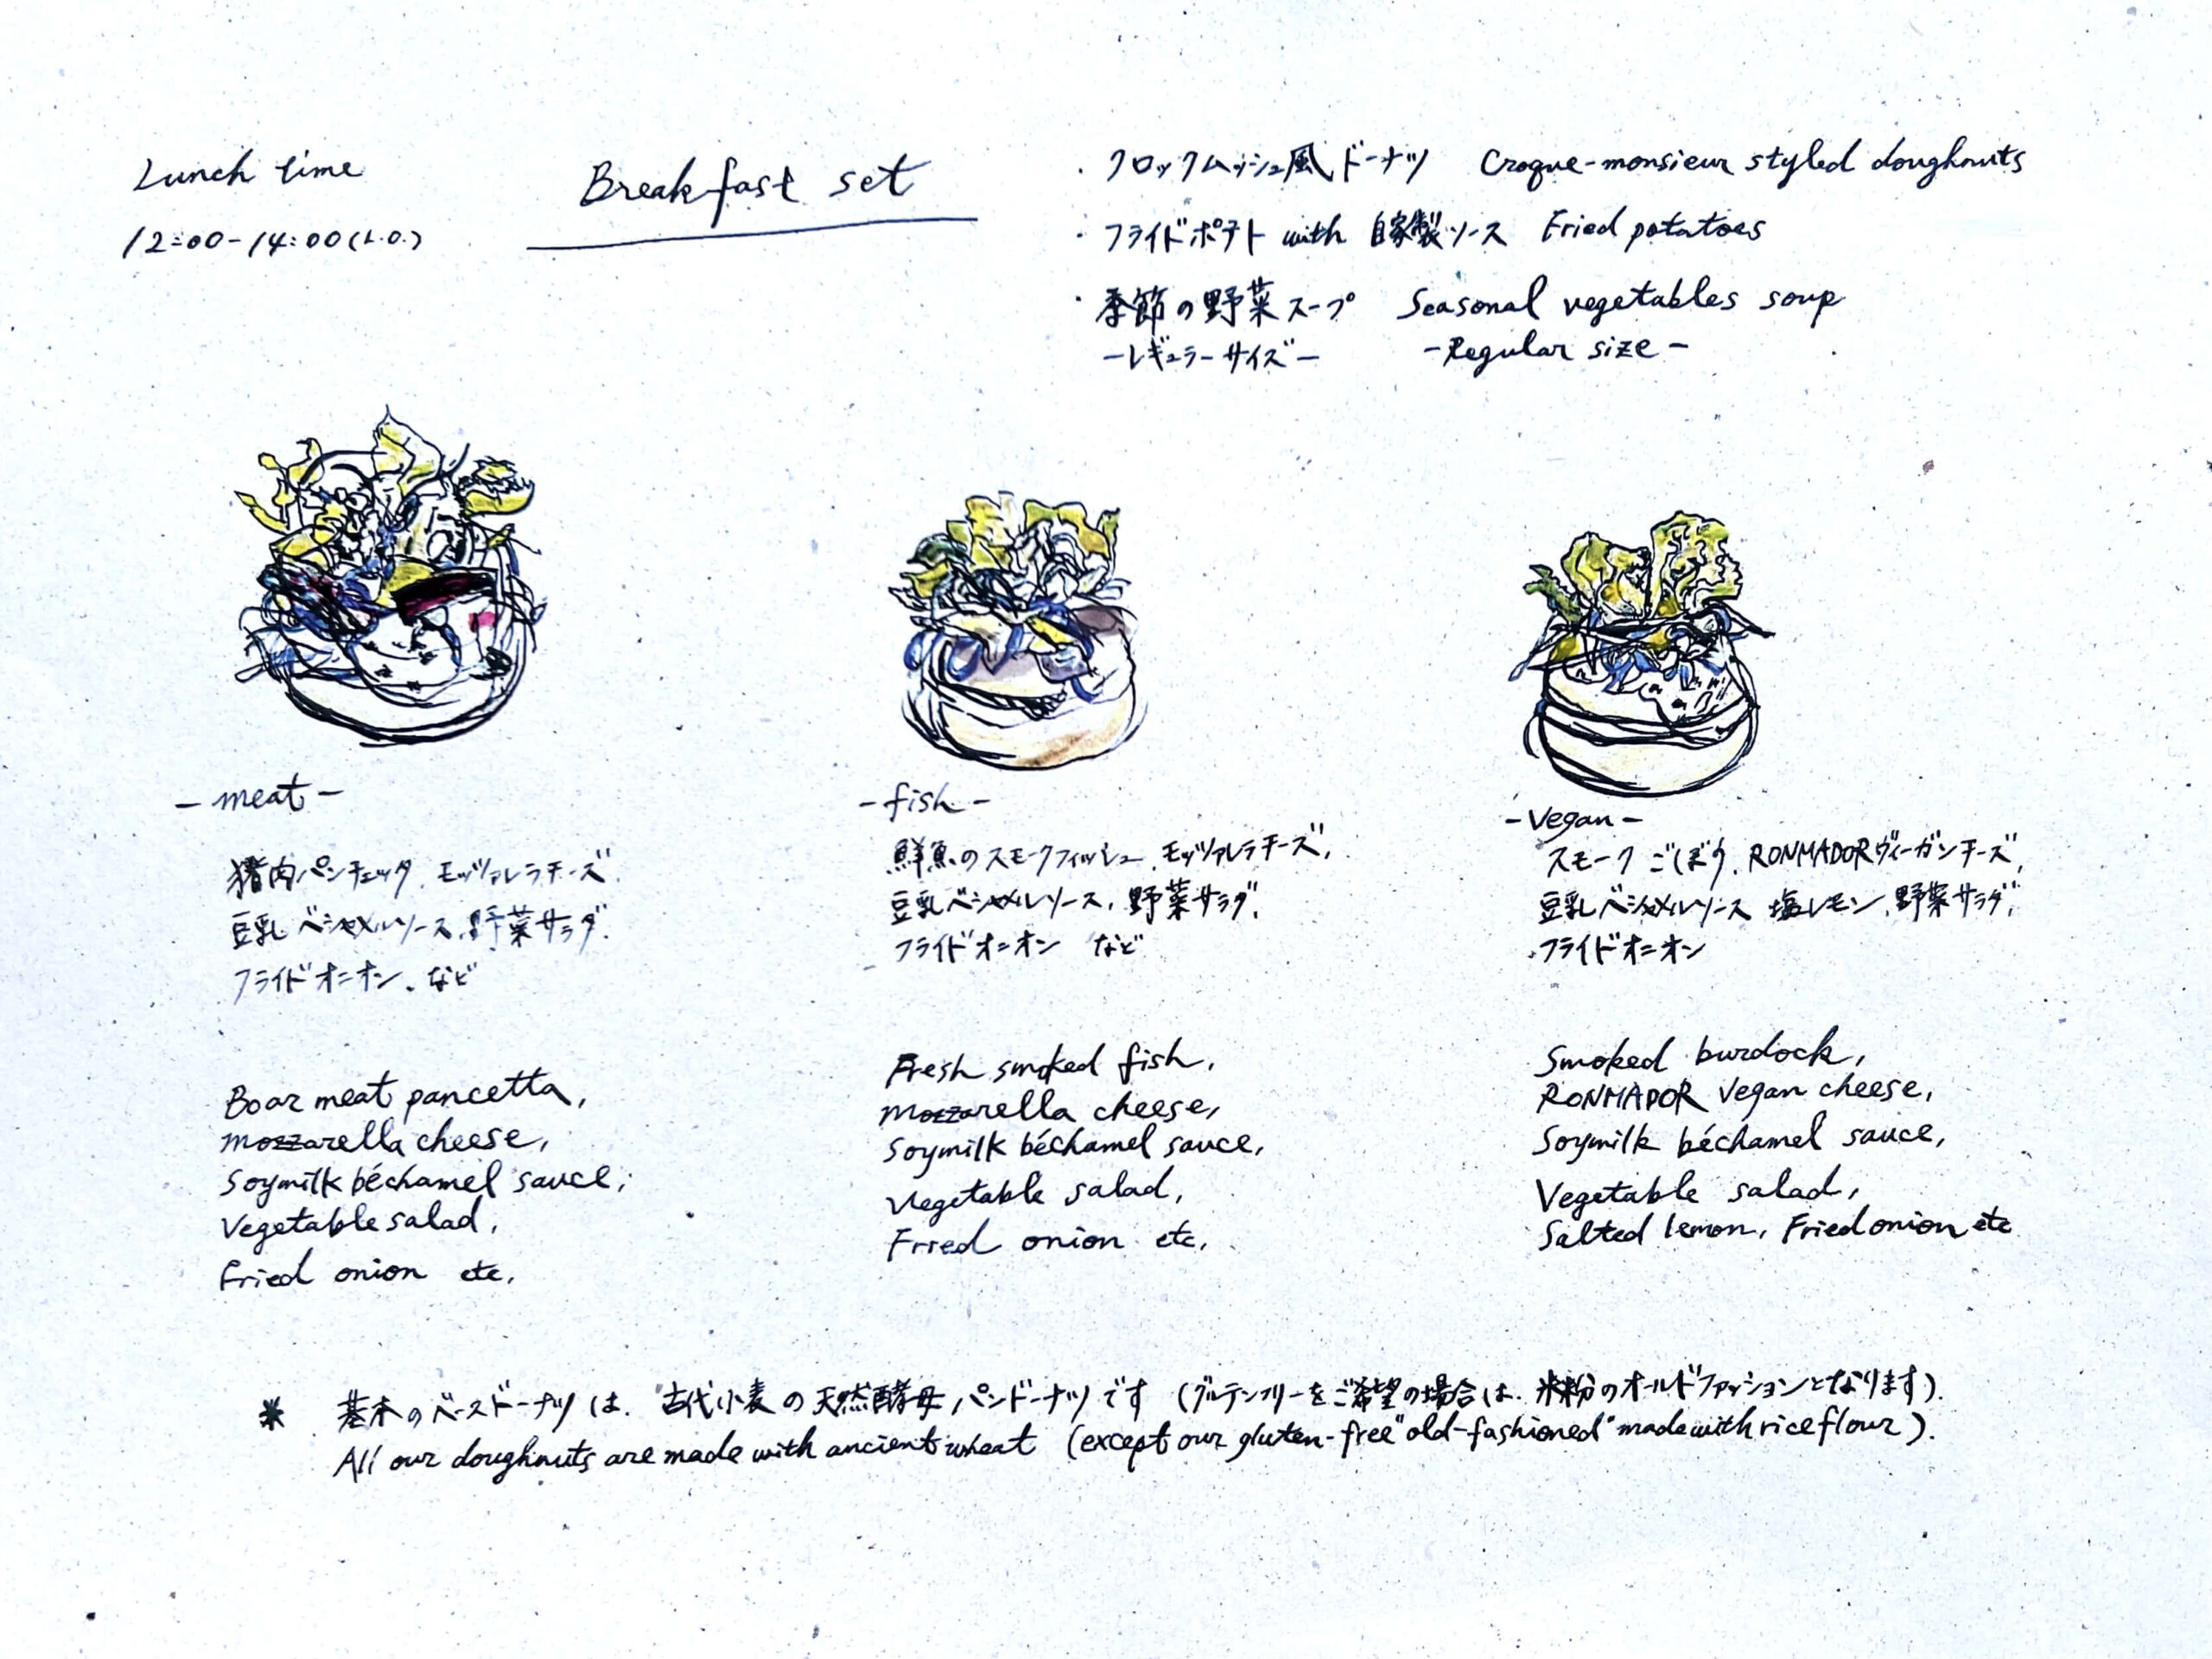 Lunch time
12:00-14:00(L.O.)
Breakfast set
・クロックムッシュ風ドーナツ Croque-monsieur styled doughnuts
・フライドポテト with 自家製ソース Fried potatoes
・季節の野菜スープ Seasonal vegetables soup
-レギュラーサイズ- -Regular size-
- meat -
猪肉パンチェッタ、モッツァレラチーズ、
豆乳ベシャメルソース、野菜サラダ、
フライドオニオン、など
Boar meat pancetta,
mozzarella cheese,
Soymilk béchamel sauce,
Vegetable salad,
Fried onion etc,
- fish -
鮮魚のスモークフィッシュ、モッツァレラチーズ、
豆乳ベシャメルソース、野菜サラダ、
フライドオニオン など
Fresh smoked fish,
mozzarella cheese,
Soymilk béchamel sauce,
Vegetable salad,
Fried onion etc,
- Vegan -
スモークごぼう、RONMADORヴィーガンチーズ、
豆乳ベシャメルソース 塩レモン、野菜サラダ、
フライドオニオン
Smoked burdock,
RONMADOR Vegan cheese,
Soymilk béchamel sauce,
Vegetable salad,
Salted lemon, Fried onion etc
* 基本のベースドーナツは、古代小麦の天然酵母パンドーナツです (グルテンフリーをご希望の場合は、米粉のオールドファッションとなります).
All our doughnuts are made with ancient wheat (except our gluten-free "old-fashioned" made with rice flour).